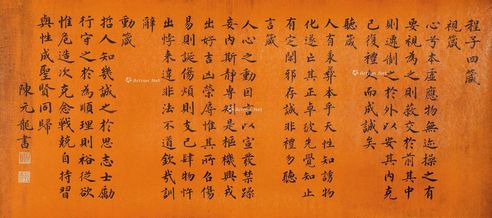 程子四箴
視箴
心兮本虛應物無迹操之有
要視為之則蔽交於前其中
則遷制之於外以安其內克
己復禮久而成誠矣
聽箴
人有秉彝本乎天性知誘物
化遂亡其正卓彼先覺知止
有定閑邪存誠非禮勿聽
言箴
人心之動因言以宣發禁躁
妄內斯靜專矧是樞機興戎
出好吉凶榮辱惟其所召傷
易則誕傷煩則支己肆物忤
出悖來違非法不道欽哉訓
辭
動箴
哲人知幾誠之於思志士勵
行守之於為順理則裕從欲
惟危造次克念戰兢自持習
與性成聖賢同歸
陳元龍書